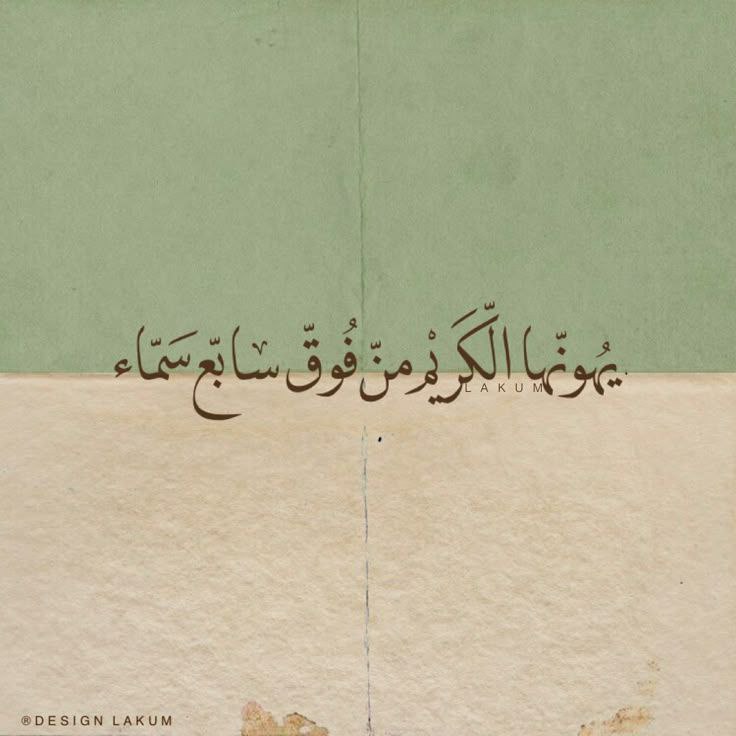 يُهونّها الَّكَريْم منّ فُوقّ سابّع سَمّاء
LAKUM
®DESIGN LAKUM